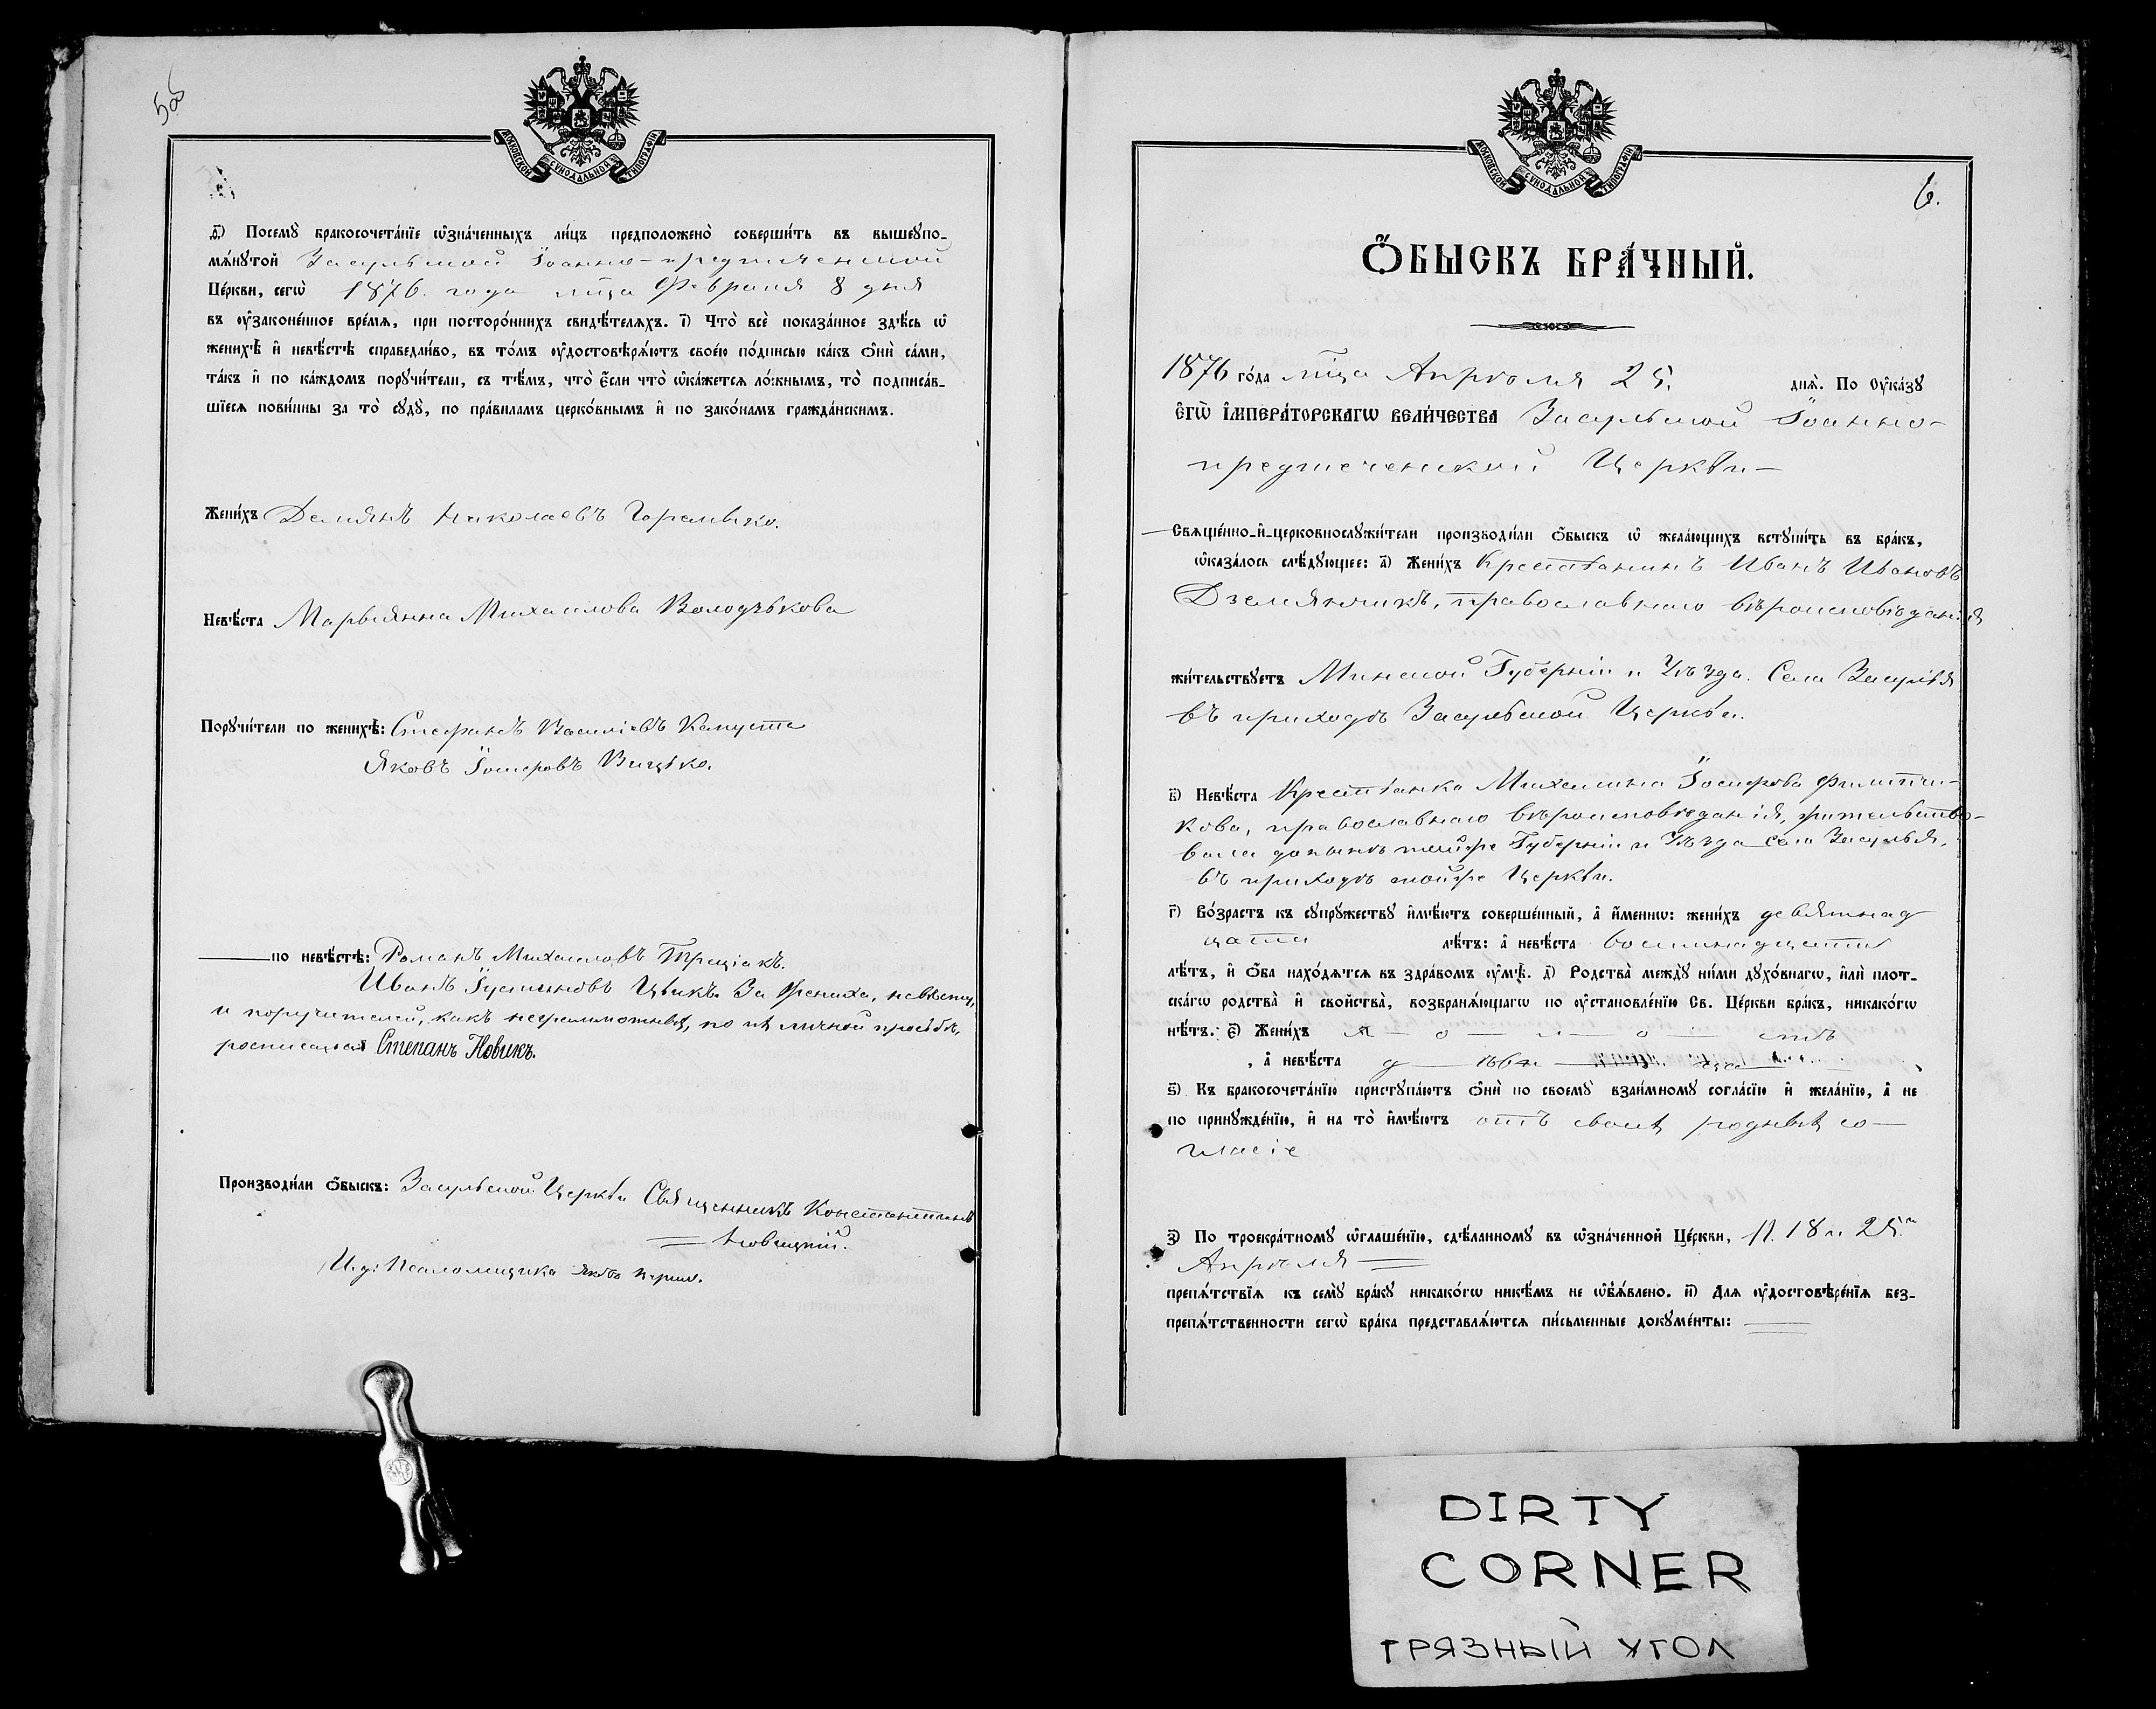 5об
МОСКОВСКОЙ СУНОДАЛЬНОЙ ТИПОГРАФІИ
д҃і) Посемꙋ̀ бракосочета́нїе ѡ҆зна́ченныхъ ли́цъ предположено̀ соверши́ть въ вышеꙋпо-
мѧ́нꙋтой Засульской Іоанно-предтеченской
Це́ркви, сегѡ̀ 1876. года мца Февраля 8 дня
въ оу҆законе́нное вре́мѧ, при посторо́ннихъ свидѣ́телѧхъ. і҃) Что̀ всѐ показа́нное здѣ́сь ѡ҆
женихѣ̀ и҆ невѣ́стѣ справедли́во, въ то́мъ оу҆достовѣрѧ́ютъ свое́ю по́дписью ка́къ ѻ҆нѝ са́ми,
та́къ и҆ по ка́ждомъ порꙋчи́тели, съ тѣ́мъ, что̀ є҆́сли что̀ ѡ҆ка́жетсѧ ло́жнымъ, то̀ подписа́в-
шїесѧ пови́нны за то̀ сꙋдꙋ̀, по пра́виламъ церко́внымъ и҆ по зако́намъ гражда́нскимъ.
Жени́хъ Демьянъ Николаевъ Горемыко.
Невѣ́ста Марьянна Михайлова Володькова
Порꙋчи́тели по женихѣ̀: Стефанъ Василіевъ Капуста
Яковъ Іосифовъ Вицько.
по невѣ́стѣ: Романъ Михайловъ Трещіакъ.
Иванъ Іустиновъ Цвикъ. За жениха, невѣсту,
и поручителей, какъ неграмотныхъ, по ихъ личной просьбѣ,
росписался Степанъ Новикъ.
Производи́ли ѻ҆́быскъ: Засульской Церкви Священникъ Константинъ
Новицкій.
И. д: Псаломщика Яковъ
МОСКОВСКОЙ СУНОДАЛЬНОЙ ТИПОГРАФІИ
6.
Ѻ҆́БЫСКЪ БРА́ЧНЫЙ.
1876 го́да мца Апрѣля 25. днѧ̀. По Оу҆ка́зꙋ
Є҆гѡ̀ И҆мпера́торскагѡ вели́чества Засульской Іоанно-
предтеченской Церкви
Свѧще́нно-и҆-церковнослꙋжи́тели производи́ли ѻ҆́быскъ ѡ҆ жела́ющихъ встꙋпи́ть въ бра́къ,
ѡ҆каза́лось слѣ́дꙋющее: а҃) Жени́хъ Крестьянинъ Иванъ Ивановъ
Дземянчикъ, православнаго вѣроисповѣданія
жи́тельствꙋетъ Минской Губерніи и Уѣзда. Села Засулья
въ приходѣ Засульской Церкви.
в҃) Невѣ́ста Крестьянка Михалина Іосифова Филипчи-
кова, православнаго вѣроисповѣданія, жительство-
вала донынѣ тойже Губерніи и Уѣзда села Засулья,
въ приходѣ тойже Церкви.
г҃) Во́зрастъ къ сꙋпрꙋ́жествꙋ и҆мѣ́ютъ соверше́нный, а҆ и҆́менно: жени́хъ девятнад
цати лѣ́тъ: а҆ невѣ́ста восемнадцати
лѣ́тъ, и҆ ѻ҆́ба нахо́дѧтсѧ въ здра́вомъ оу҆мѣ̀. д҃) Родства̀ междꙋ̀ ни́ми дꙋхо́внагѡ, и҆лѝ плот-
ска́гѡ родства̀ и҆ сво́йства̀, возбранѧ́ющагѡ по оу҆становле́нїю Св. Це́ркви бра́къ, никако́гѡ
нѣ́тъ. є҃) Жени́хъ х о л о стъ
, а҆ невѣ́ста д ѣви ца
ѕ҃) Къ бракосочета́нїю пристꙋпа́ютъ ѻ҆нѝ по своемꙋ̀ взаи́мномꙋ согла́сїю и҆ жела́нїю, а҆ не
по принꙋжде́нїю, и҆ на то̀ и҆мѣ́ютъ отъ своихъ родныхъ со-
гласіе
з҃) По троекра́тномꙋ ѡ҆глаше́нїю, сдѣ́ланномꙋ въ ѡ҆зна́ченной Це́ркви, 11. 18 и 25.
Апрѣля
препѧ́тствїѧ къ семꙋ̀ бра́кꙋ никако́гѡ никѣ́мъ не ѡ҆б̾ѧ́влено. и҃) Длѧ оу҆достовѣре́нїѧ без-
препѧ́тственности сегѡ̀ бра́ка представлѧ́ютсѧ пи́сьменные докꙋме́нты:
DIRTY
CORNER
ГРЯЗНЫЙ УГОЛ